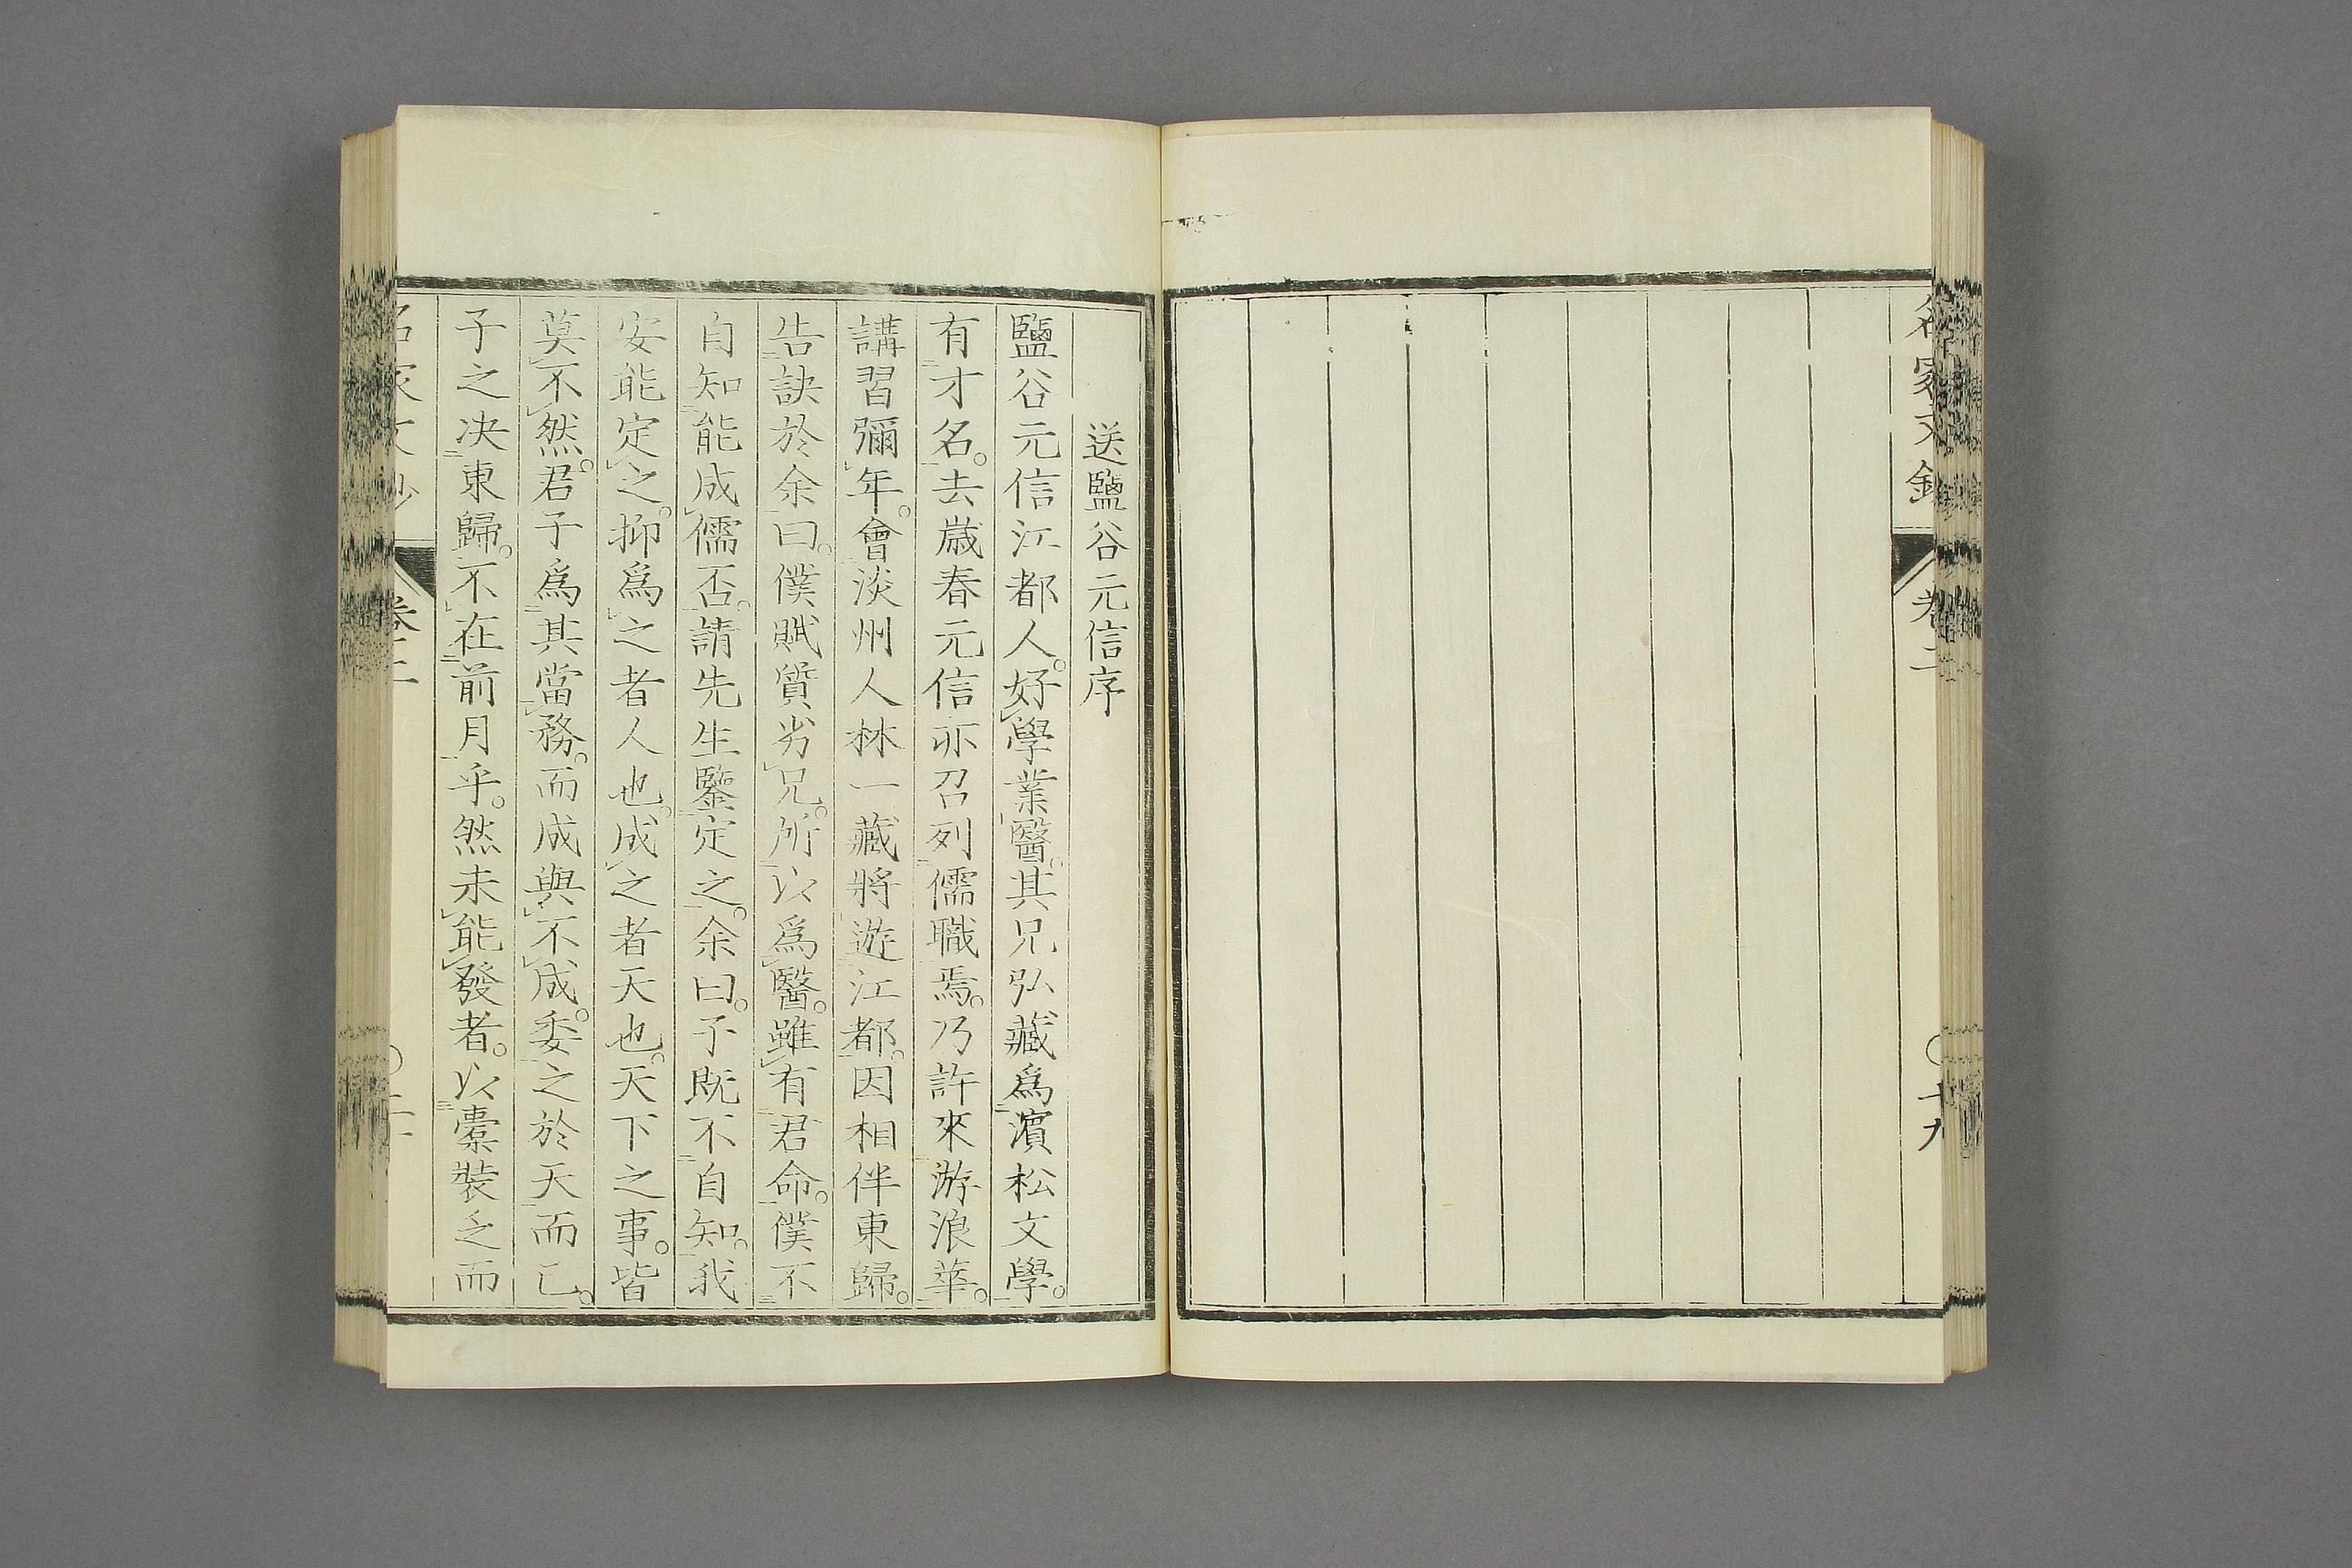 送鹽谷元信序
鹽谷元信江都人。好學業醫。其兄弘藏爲濵松文學。
有才名。去歲春元信亦召列儒職焉。乃許來游浪華。
講習彌年。會淡州人林一藏將遊江都。因相伴東歸。
告訣於余曰。僕賦質劣兄。所以爲醫。雖有君命。僕不
自知能成儒否。請先生鑒定之。余曰。子既不自知。我
安能定之。抑爲之者人也。成之者天也。天下之事。皆
莫不然。君子爲其當務。而成與不成。委之於天而已。
子之决東歸。不在前月乎。然未能發者。以橐裝之而
卷二